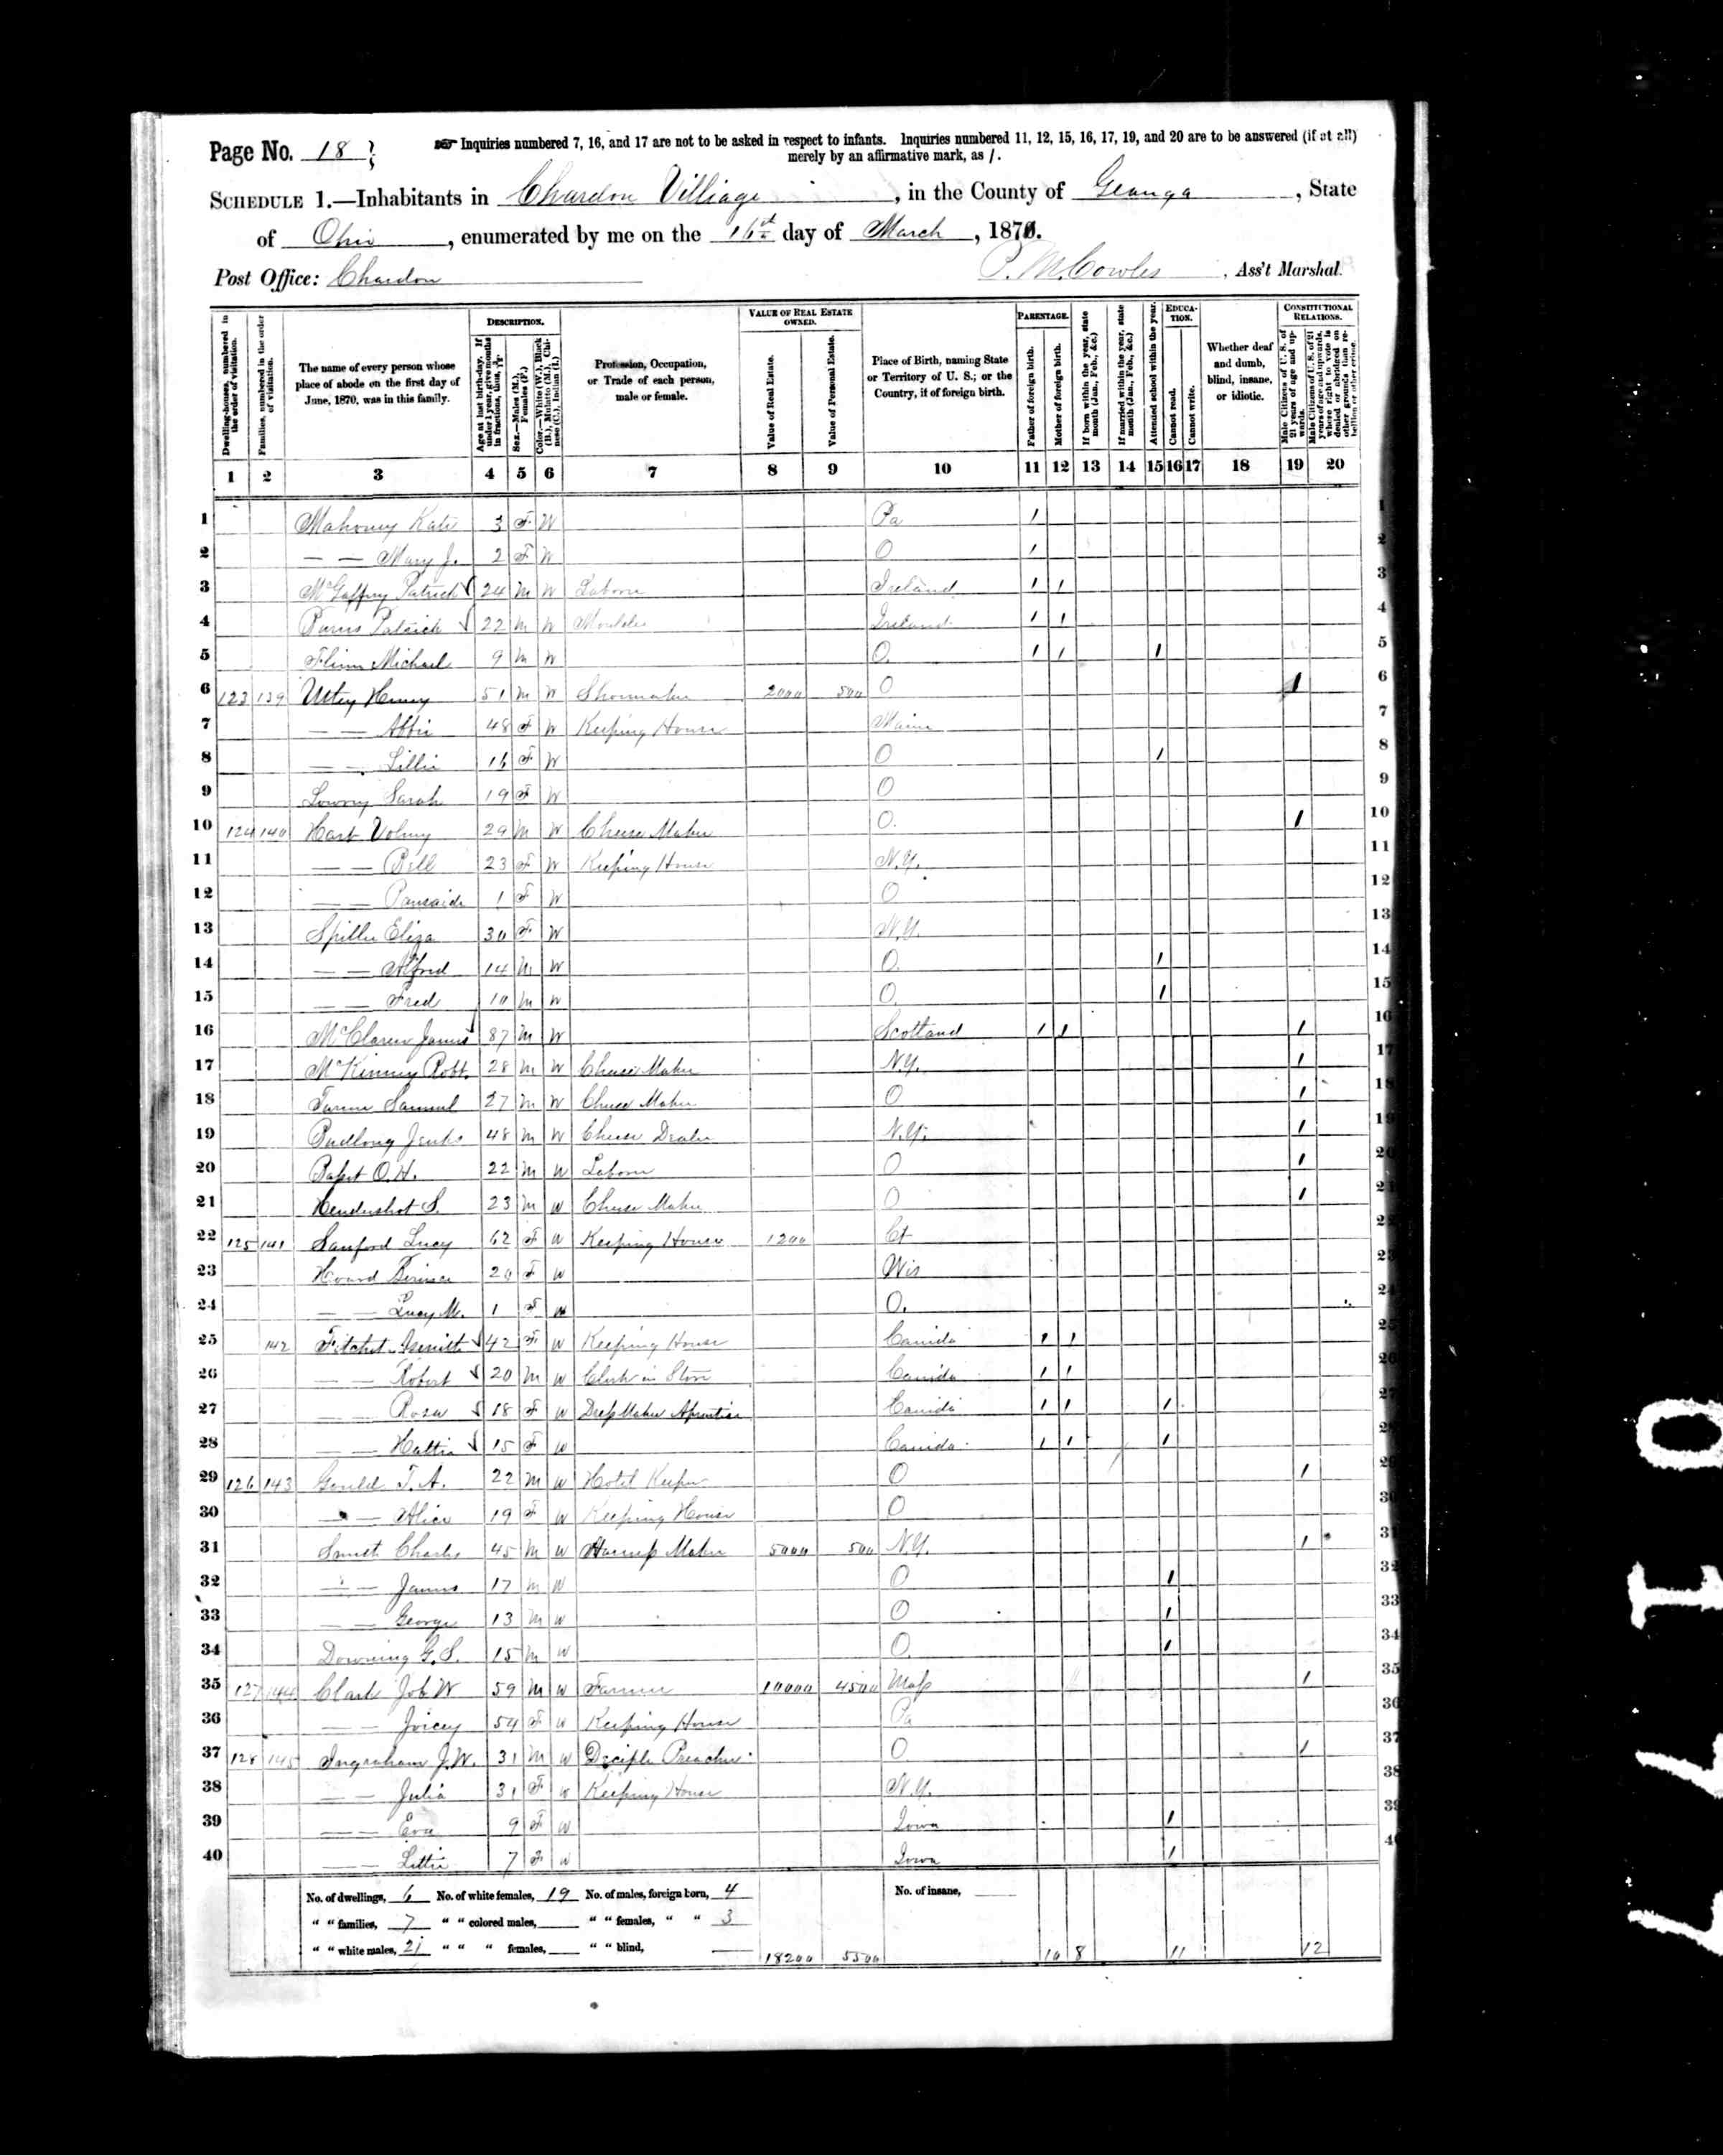 Page No. 18
Inquiries numbered 7, 16, and 17 are not to be asked in respect to infants. Inquiries numbered 11, 12, 15, 16, 17, 19, and 20 are to be answered (if at all)
merely by an affirmative mark, as /.
SCHEDULE 1.—Inhabitants in Chardon Villiage, in the County of Geauga, State
of Ohio, enumerated by me on the 16 day of March, 1870.
Post Office: Chardon P. M. Cowles, Ass't Marshal.
Dwelling-houses, numbered in the order of visitation.
Families, numbered in the order of visitation.
The name of every person whose place of abode on the first day of June, 1870, was in this family.
DESCRIPTION.
Age at last birth-day. If under 1 year, give months in fractions, thus, 3/12
Sex.—Males (M.), Females (F.)
Color.—White (W.), Black (B.), Mulatto (M.), Chinese (C.), Indian (I.)
Profession, Occupation, or Trade of each person, male or female.
VALUE OF REAL ESTATE OWNED.
Value of Real Estate.
Value of Personal Estate.
Place of Birth, naming State or Territory of U. S.; or the Country, if of foreign birth.
PARENTAGE.
Father of foreign birth.
Mother of foreign birth.
If born within the year, state month (Jan., Feb., &c.)
If married within the year, state month (Jan., Feb., &c.)
Attended school within the year.
EDUCATION.
Cannot read.
Cannot write.
Whether deaf and dumb, blind, insane, or idiotic.
CONSTITUTIONAL RELATIONS.
Male Citizens of U. S. of 21 years of age and upwards.
Male Citizens of U. S. of 21 years of age and upwards, whose right to vote is denied or abridged on other grounds than rebellion or other crime.
1 2 3 4 5 6 7 8 9 10 11 12 13 14 15 16 17 18 19 20
1 Mahoney Kate 3 F W Pa / 1
2 — — Mary J. 2 F W O / 2
3 McGaffny Patrick 24 M W Labore Ireland / / 3
4 Burns Patrick 22 M W Moulder Ireland / / 4
5 Flinn Michael 9 M W O / / / 5
6 123 139 Utley Henry 51 M W Shoemaker 2000 500 O / 6
7 — — Abbie 48 F W Keeping House Maine 7
8 — — Lillie 16 F W O / 8
9 Lowry Sarah 19 F W O 9
10 124 140 Hart Volney 29 M W Cheese Maker O. / 10
11 — — Bell 23 F W Keeping House N.Y. 11
12 — — 1 F W O 12
13 Eliza 30 F W N.Y. 13
14 — — Alfred 14 M W O. / 14
15 — — Fred 10 M W O. / 15
16 McClaren James 87 M W Scotland / / / 16
17 McKinney Robt. 28 M W Cheese Maker N.Y. / 17
18 Samuel 27 M W Cheese Maker O / 18
19 Budlong Jenks 48 M W Cheese Dealer N.Y. / 19
20 O.H. 22 M W Labore O / 20
21 Hendershot S. 23 M W Cheese Maker O / 21
22 125 141 Sanford Lucy 62 F W Keeping House 1200 Ct 22
23 20 F W Wis 23
24 — — Lucy M. 1 F W O. 24
25 142 42 F W Keeping House Canida / / 25
26 — — Robert 20 M W Clerk in Store Canida / / 26
27 — — Rosa 18 F W Canida / / / 27
28 — — Hattie 15 F W Canida / / / 28
29 126 143 Gould T. A. 22 M W Hotel Keeper O / 29
30 — — Alice 19 F W Keeping House O 30
31 Charles 45 M W Harness Maker 5000 500 N.Y. / 31
32 — — James 17 M W O / 32
33 — — George 13 M W O / 33
34 Downing G. S. 15 M W O. / 34
35 127 144 Clark Job W 59 M W Farmer 10000 4500 Mass / 35
36 — — Joicey 54 F W Keeping House Pa 36
37 128 145 Ingraham J. W. 31 M W Deciple Preacher O. / 37
38 — — Julia 31 F W Keeping House N.Y. 38
39 — — Eva 9 F W Iowa / 39
40 — — Lettie 7 F W Iowa / 40
No. of dwellings, 6 No. of white females, 19 No. of males, foreign born, 4 No. of insane,
" " families, 7 " " colored males, " " females, " " 3
" " white males, 21 " " " females, " " blind, 18200 5500 10 8 11 12